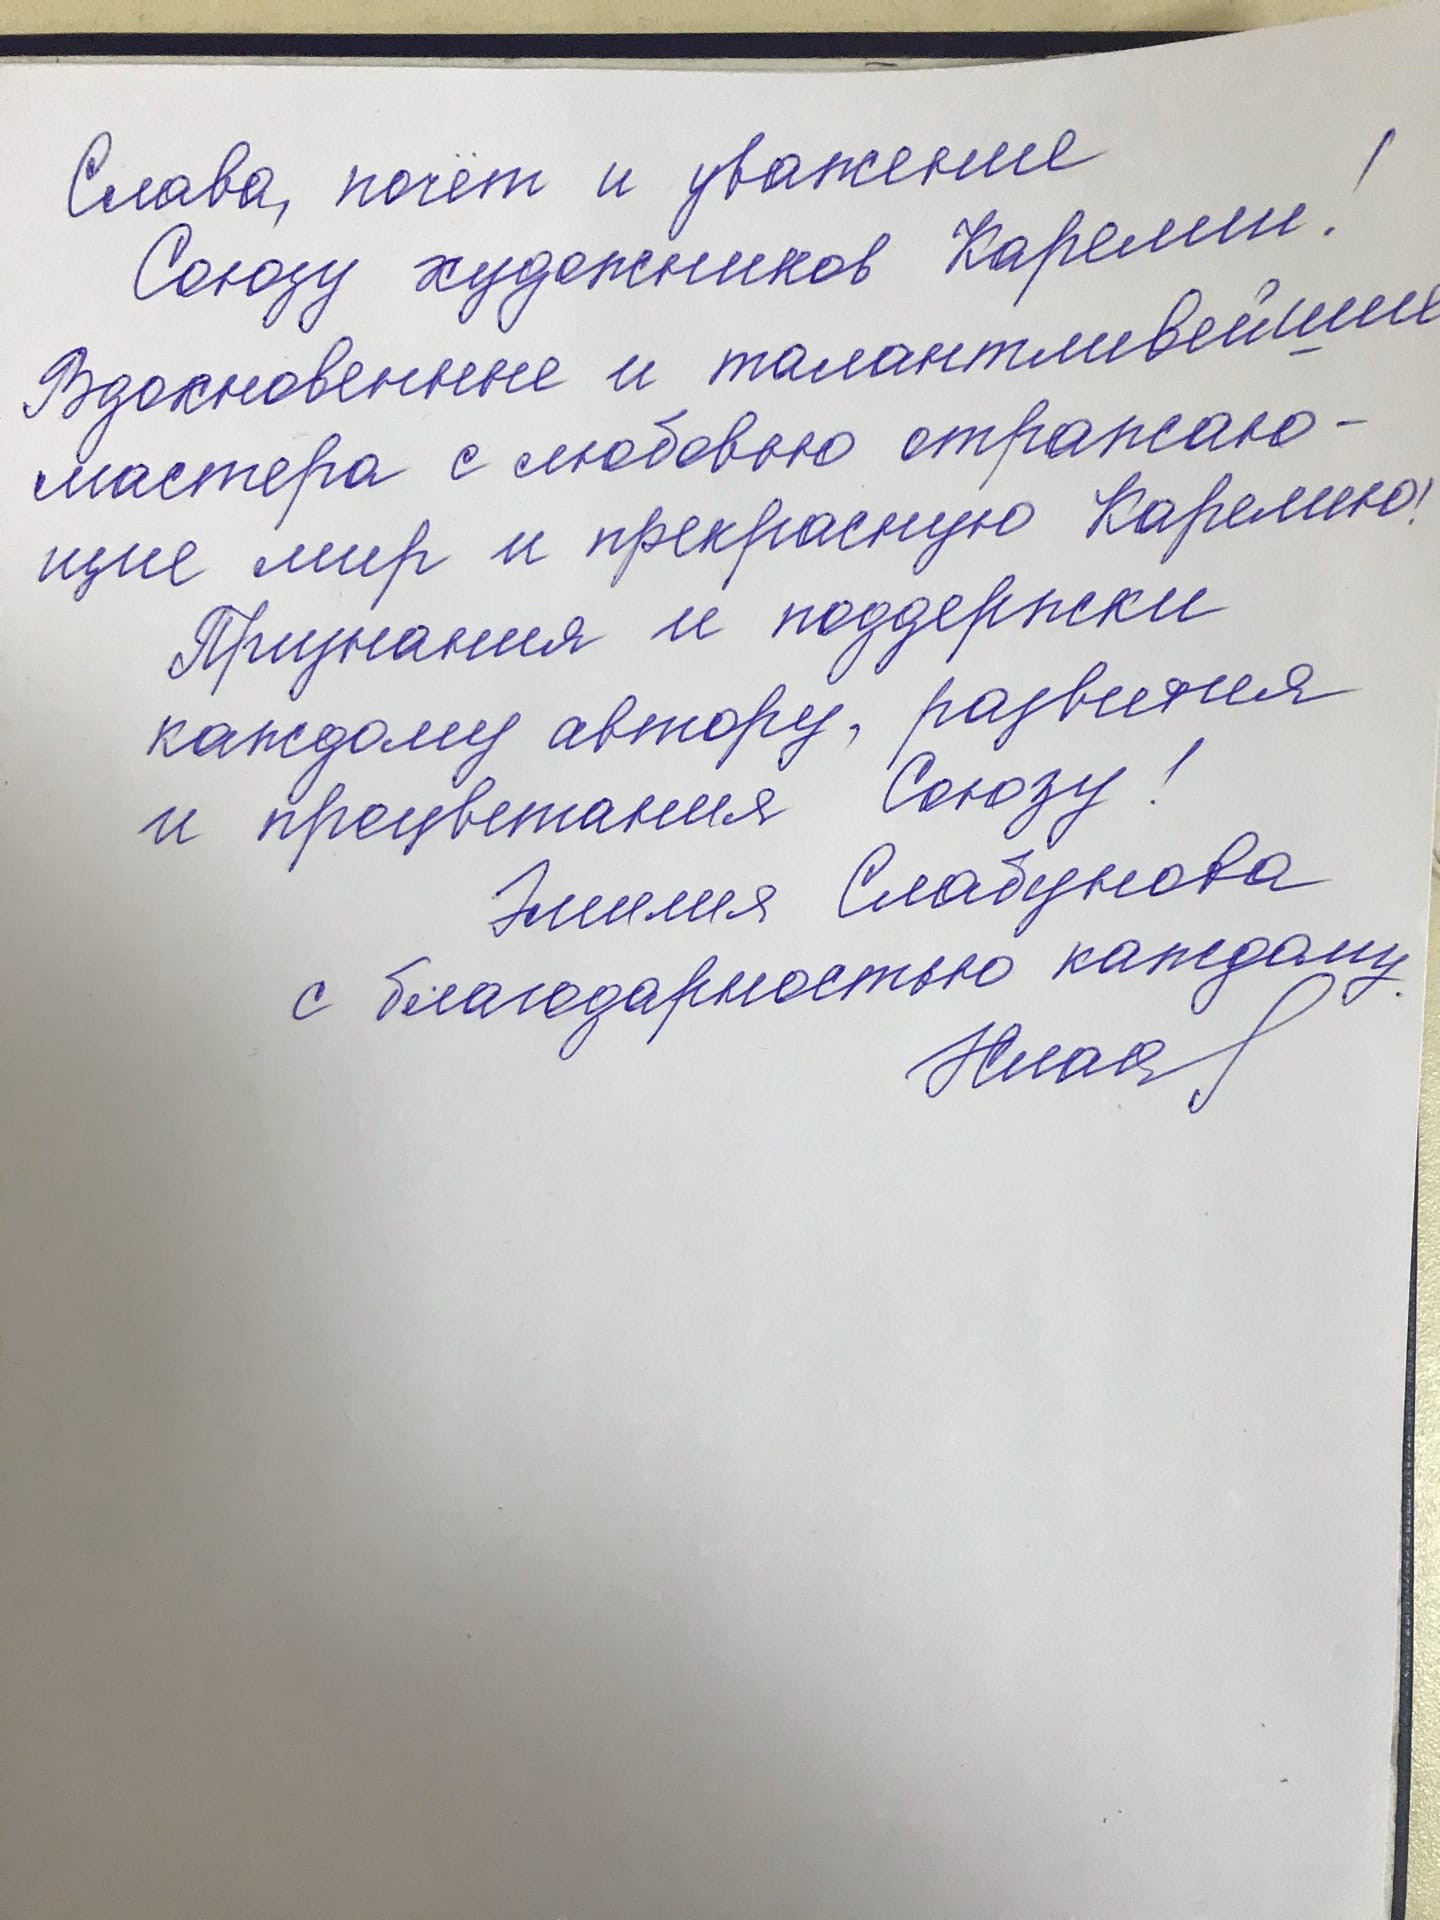 Слава, почёт и уважение
Союзу художников Карелии!
Вдохновенные и талантливейшие
мастера с любовью отражаю-
щие мир и прекрасную Карелию!
Признания и поддержки
каждому автору, развития
и процветания Союзу!
Эмилия Слабунова
с благодарностью каждому.